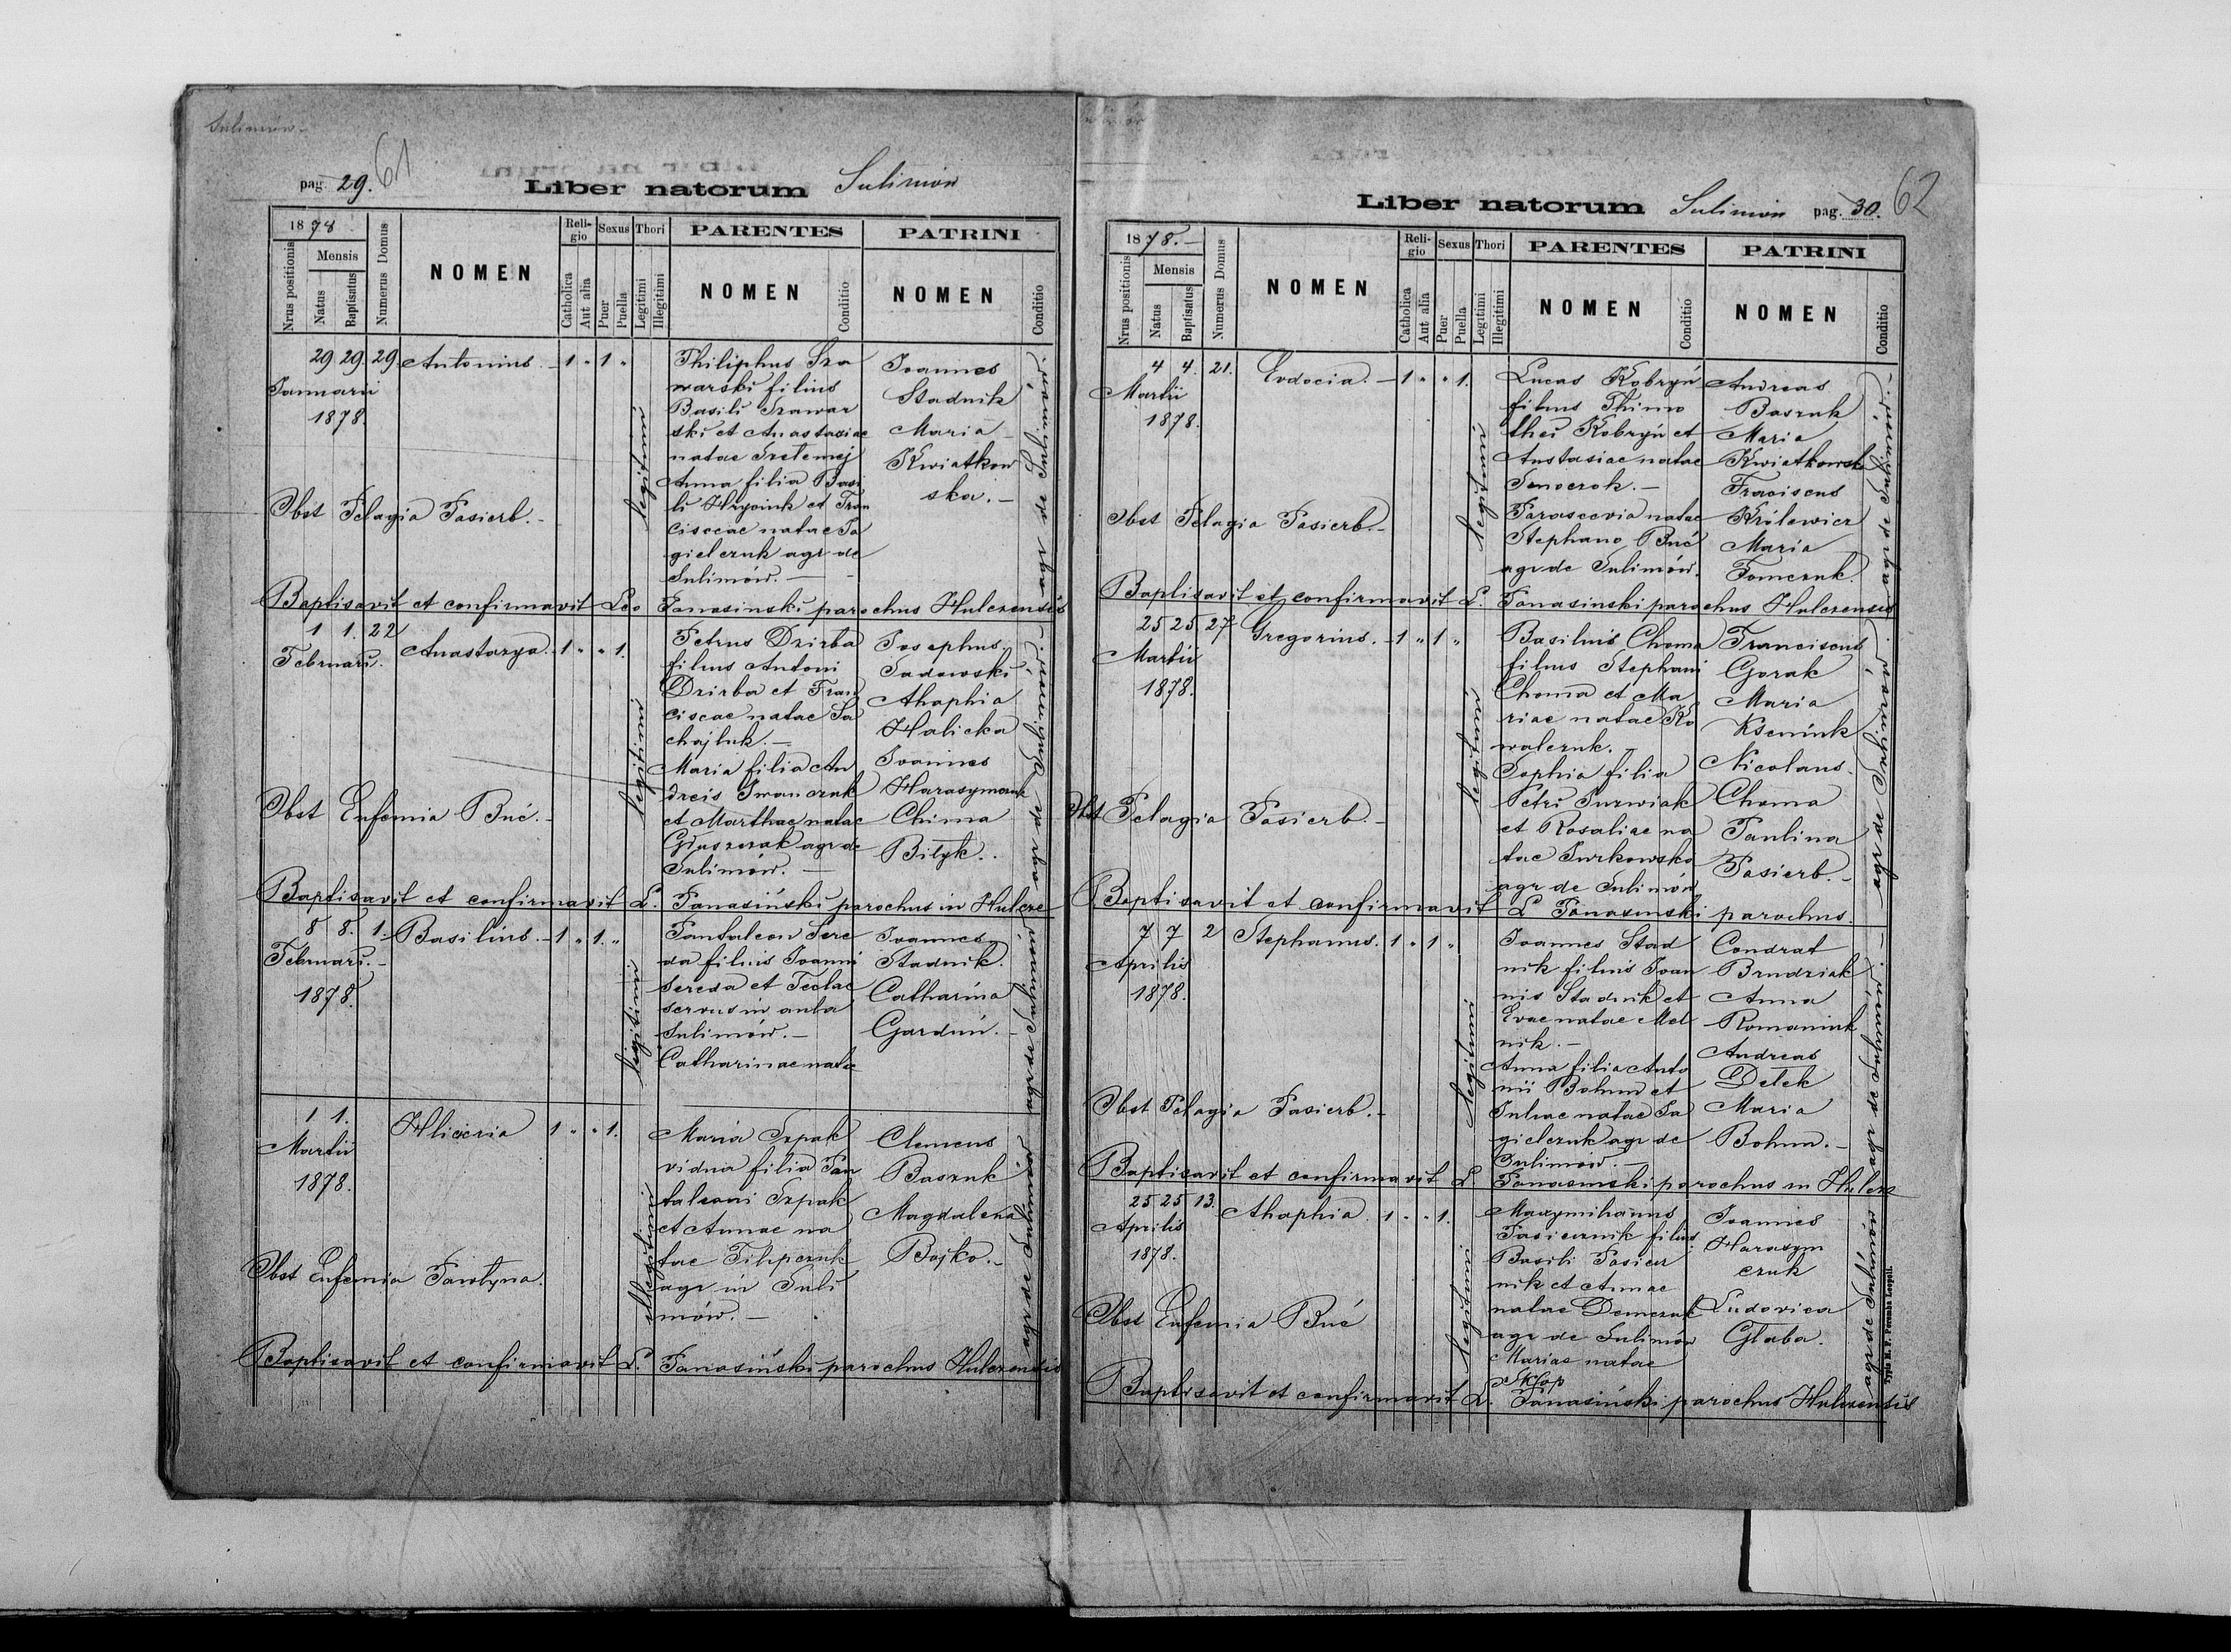 Sulimów
pag. 29. 61
Liber natorum Sulimów
1878
Nrus positionis
Mensis
Natus
Baptisatus
Numerus Domus
NOMEN
Religio
Catholica
Aut alia
Sexus
Puer
Puella
Thori
Legitimi
Illegitimi
PARENTES
NOMEN
Conditio
PATRINI
NOMEN
Conditio
29 29. 29. Antonius. - 1 " 1 "
Januarii
1878.
legitimi
Philiphus Sza
warski filius
Basili Szawar
ski et Anastasiae
natae
Anna filia Basi
li et Fran
ciscae natae Sa
gielczuk agr de
Sulimów. -
Joannes
Stadnik
Maria
Kwiatkow
ska. -
agr de Sulimów.
Obst Pelagia Pasierb. -
Baptisavit et confirmavit Leo Panasinski parochus Hulczensis
1 1. 22
Februarii. Anastazya. 1 " " 1.
legitimi
Petrus Dzirba
filius Antoni
Dzirba et Fran
ciscae natae Sa
chajluk. -
Maria filia An
dreis Iwanczuk
et Marthae natae
Głuszczak agr de
Sulimów. -
Josephus
Sadowski
Ahaphia
Halicka
Joannes
Harasymczuk
Chima
Bilyk.
agr de Sulimów. -
Obst Eufemia Buć. -
Baptisavit et confirmavit L. Panasiński parochus in Hulcze
8 8. 1. Basilius. - 1 " 1. "
Februarii. -
1878.
legitimi
Pantaleon Sere
da filius Joanni
Sereda et Teclae
servus in aula
Sulimów. -
Catharinae natae
Joannes
Stadnik.
Catharina
Garduń. -
agr de Sulimów
1 1. Hliceria 1 " " 1.
Martii
1878.
illegitimi
Maria Szpak
vidua filia Pan
taleoni Szpak
et Annae na
tae Filipczuk
agr in Suli
mów. -
Clemens
Baszuk
Magdalena
Bojko. -
agr de Sulimów
Obst Eufemia Pawlyna.
Baptisavit et confirmavit L. Panasiński parochus Hulczensis
Liber natorum Sulimów pag. 30. 62
1878. -
Nrus positionis
Mensis
Natus
Baptisatus
Numerus Domus
NOMEN
Religio
Catholica
Aut alia
Sexus
Puer
Puella
Thori
Legitimi
Illegitimi
PARENTES
NOMEN
Conditio
PATRINI
NOMEN
Conditio
4 4. 21. Evdocia. - 1 " " 1.
Martii
1878.
legitimi
Lucas Kobryń
filius Thimo
thei Kobryń et
Anstasiae natae
Senoczok. -
Parascevia natae
Stephano Buć
agr de Sulimów.
Andreas
Baszuk
Maria
Kwiatkowska
Fraciscus
Królewicz
Maria
Tomczuk.
agr de Sulimów. -
Obst Pelagia Pasierb. -
Baptisavit et confirmavit L. Panasinski parochus Hulczensis
25 25 27 Gregorius. - 1 " 1 "
Martii
1878.
legitimi
Basilius Choma
filius Stephani
Choma et Ma
riae natae Ko
walczuk. -
Sophia filia
Petri Surwiak
et Rosaliae na
tae Jurkowska
agr de Sulimów
Franciscus
Gorak
Maria
Kseniuk
Nicolaus
Choma
Paulina
Pasierb. -
agr de Sulimów.
Obst Pelagia Pasierb. -
Baptisavit et confirmavit L Panasinski parochus.
7 7 2 Stephanus. 1 " 1 "
Aprilis
1878.
legitimi
Joannes Stad
nik filius Joan
nis Stadnik et
Evae natae Mel
nik. -
Anna filia Anto
nii Bohun et
Juliae natae Sa
gielczuk agr de
Sulimów. -
Condrat
Brudziak
Anna
Romaniuk
Andreas
Detek
Maria
Bohun. -
agr de Sulimów. -
Obst Pelagia Pasierb. -
Baptisavit et confirmavit L. Panasinski parochus in Hulcze
25 25 13. Ahaphia 1 " " 1.
Aprilis
1878.
legitimi
Maxymilianus
Pasicznik filius
Basili Pasicz
nik et Annae
natae Demczuk
agr de Sulimów
Mariae natae
Skop
Joannes
Harasym
czuk
Ludovica
Głaba.
agr de Sulimów
Obst Eufemia Buć
Baptisavit et confirmavit L. Panasiński parochus Hulczensis
Typis M. F. Poremba Leopoli.